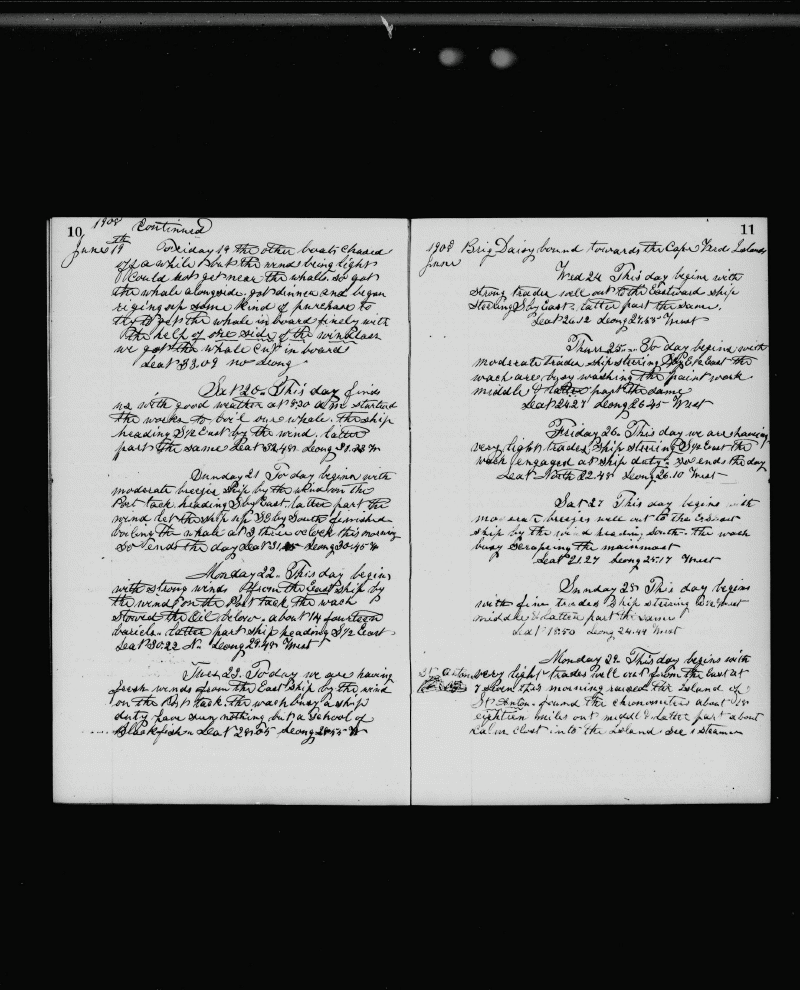 10 1908 Continued
June 19th Friday 19 the other boats chased
for a while but the wind being light
Could not get near the whalls so got
the whale alongside got dinner and began
riging up some kind of purchase to
try to get the whale in board finely with
the help of one side of the winlass
we got the whale cut in board
Leat 33.09 no Leong
Sat 20 This day finds
us with good weather at 8.30 a m started
the works to boil our whale. the ship
heading S½ East by the wind. latter
part the same Leat 32.48 Leong
Sunday 21 To day begins with
moderate breezes Ship by the wind on the
Port tack heading S by East. latter part the
wind let the ship up SE by South finished
boiling the whale at 3 three oclock this morning
So ends the day Leat 31 Leong 30.45 W
Monday 22 This day begins
with strong winds from the East ship by
the wind on the Port tack the wach
stowed the Oil below. about 14 fourteen
barrels. latter part ship heading S½ East
Leat 30.22 N. Leong 29.48 West
Tues 23. To day we are having
fresh winds from the East Ship by the wind
on the Port tack the wach busy a ship
duty have seen nothing but a School of
Blackfish Leat 28.05 Leong W
11
1908 Brig Daisy bound towards the Cape Verd Islands
June
Wed 24 This day begins with
strong trades well out to the Eastward ship
steering S by East. latter part the same.
Leat 26.12 Leong 27.58 West
Thurs 25 To day begins with
moderate trades ship steering E½ East the
wach are busy washing the paint work
middle & latter part the same
Leat 24.27 Leong 26.45 West
Friday 26. This day we are having
very light trades Ship steering S½ East the
wach engaged at ship duty. so ends the day
Leat North 22.48 Leong 26.10 West
Sat 27 This day begins with
moderate breezes well out to the Eastward
ship by the wind heading South. the wach
busy Scraping the mainmast
Leat 21.27 Leong 25.17 West
Sunday 28 This day begins
with fine trades Ship steering
middle & latter part the same
Leat 18.50 Leong 24.44 West
Monday 29 This day begins with
St Anton very light trades well out from the East at
7 seven this morning raised the Island of
St Anton. found the chronometer about 18
eighteen miles out middle & latter part about
Calm Close into the Island See 1 steamer